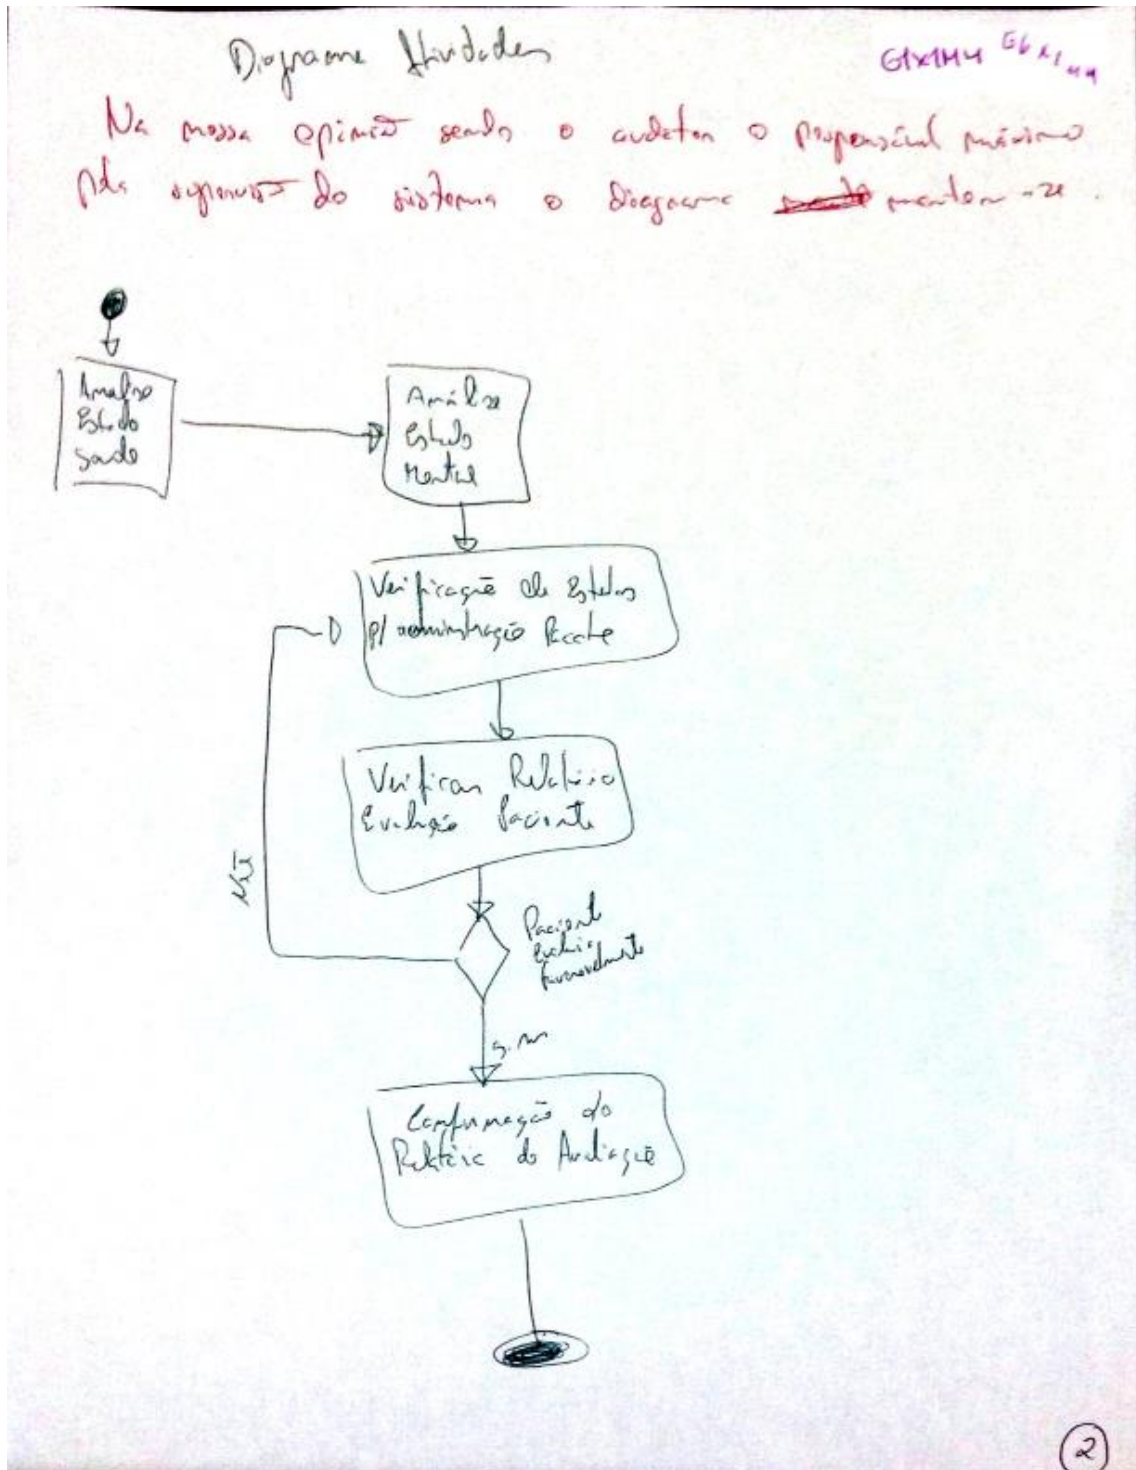 Diagrama Atividades
G1X1M4 G6X1M4
Na nossa opinião sendo o auditor o responsável máximo
pela supervisão do sistema o diagrama mantem-se.
Analise
Estado
Saude
Análise
Estado
Mental
Verificação de Estados
p/ administração Pacote
Verificar Relatório
Evolução Paciente
Não
Paciente
Evolui
favoravelmente
Sim
Confirmação do
Relatório de Avaliação
2